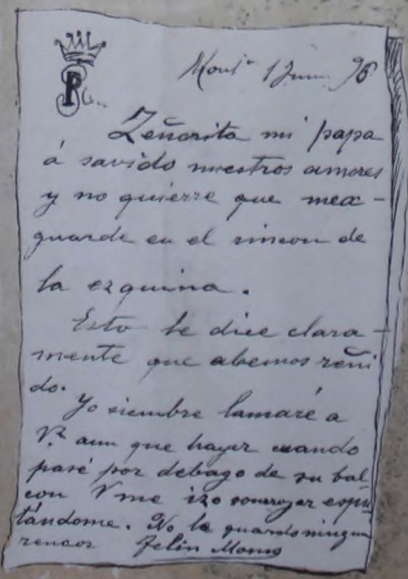 P
Mont. 1 Jun. 96
Zeñorita mi papa
á savido nuestros amores
y no quierre que meax-
guarde en el rincon de
la ezquina.
Esto le dice clara-
mente que abemos reñi
do.
Yo siembre lamaré a
V. aun que hayer cuando
pasé por debago de su bal-
con V me izo sonrrojar espu
tándome. No le guardo ningun
rencor Felin Momo